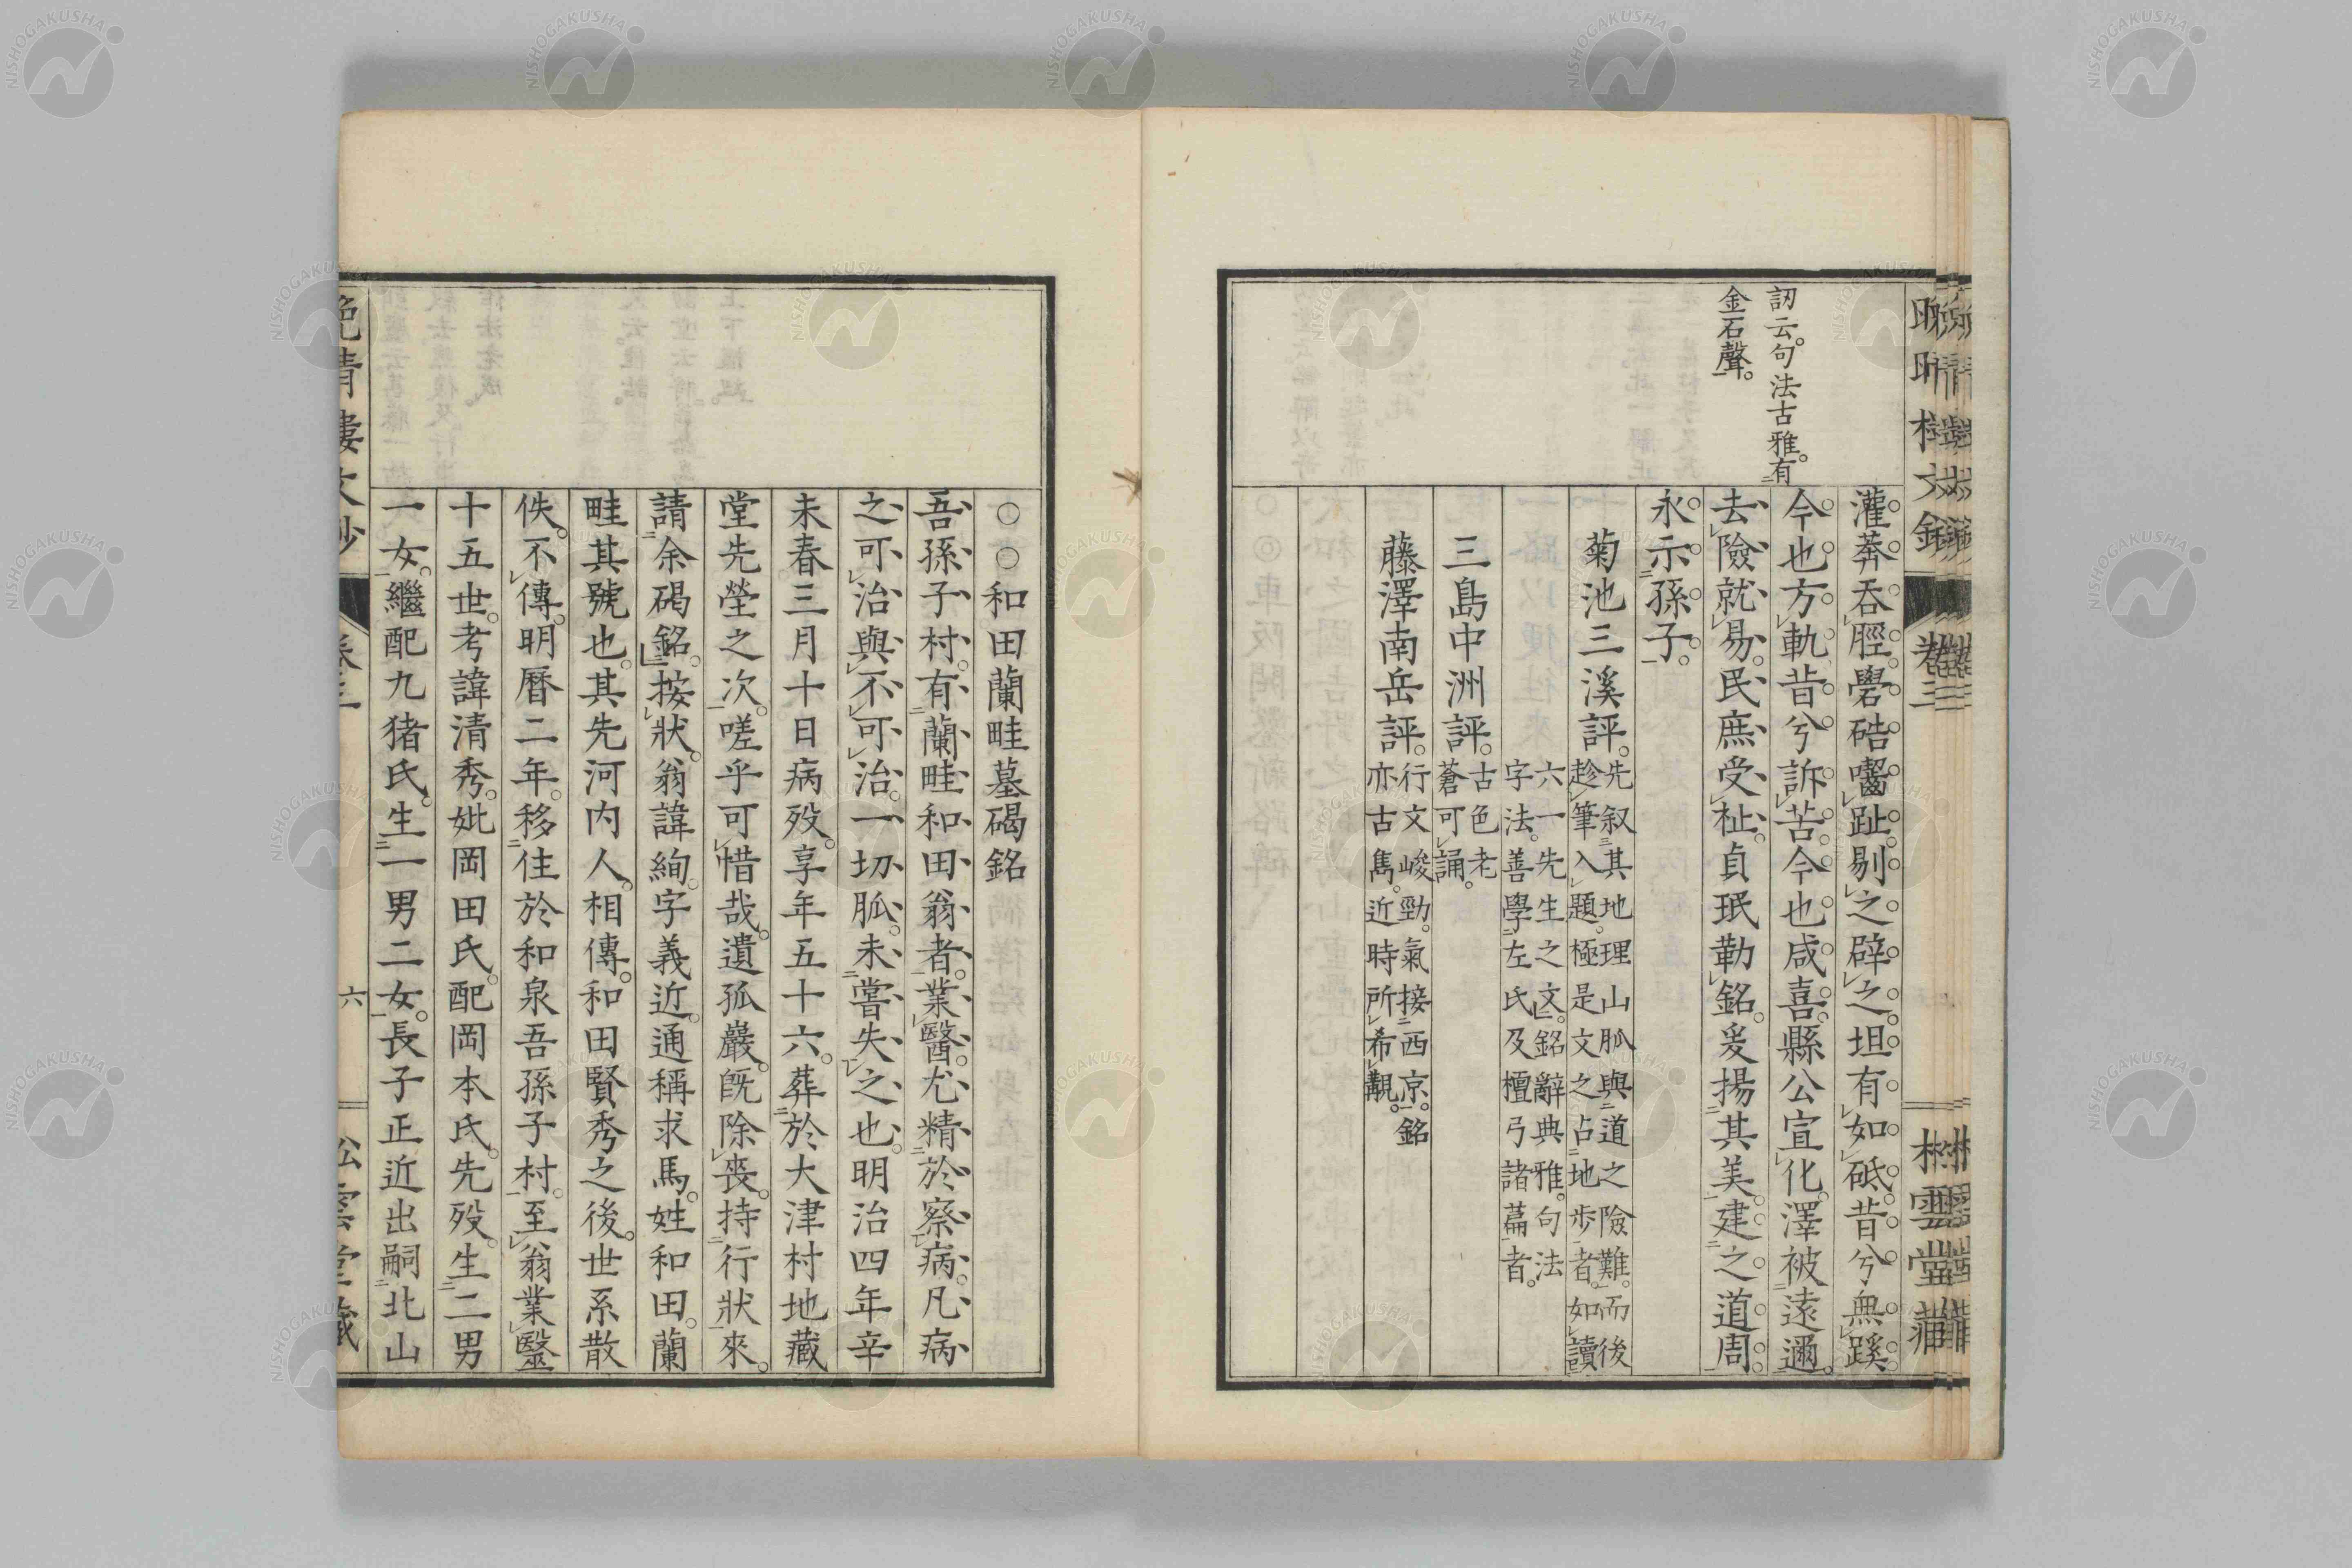 訒云。句法古雅。有
金石聲。
灌莽吞脛。礐硞囓趾。剔之辟之。坦有如砥。昔兮無蹊。
今也方軌。昔兮訴苦。今也咸喜。縣公宣化。澤被遠邇。
去險就易。民庶受祉。貞珉勒銘。爰揚其美。建之道周。
永示孫子。
菊池三溪評。先叙其地理山脈與道之險難。而後
趁筆入題。極是文之占地步者。如讀
六一先生之文。銘辭典雅。句法
字法。善學左氏及檀弓諸篇者。
三島中洲評。古色老
蒼可誦。
藤澤南岳評。行文峻勁。氣接西京。銘
亦古雋。近時所希覯。
卷三
○○和田蘭畦墓碣銘
吾孫子村。有蘭畦和田翁者。業醫。尤精於察病。凡病
之可治與不可治。一切脈。未嘗失之也。明治四年辛
未春三月十日病歿。享年五十六。葬於大津村地藏
堂先塋之次。嗟乎可惜哉。遺孤巖。既除喪。持行狀來。
請余碣銘。按狀。翁諱絢。字義近。通稱求馬。姓和田。蘭
畦其號也。其先河内人。相傳。和田賢秀之後。世系散
佚。不傳。明曆二年。移住於和泉吾孫子村。至翁業毉
十五世。考諱清秀。妣岡田氏。配岡本氏。先歿。生二男
一女。繼配九猪氏。生一男二女。長子正近出嗣北山
晚晴樓文鈔
卷三
六
松雲堂藏
NISHOGAKUSHA